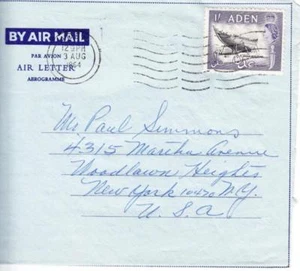 BY AIR MAIL
PAR AVION
AIR LETTER
AEROGRAMME
12
3 AUG
1/-
ADEN
Mr. Paul Simmons
4315 Martha Avenue
Woodlawn Heights
New York 10470 N.Y.
U.S.A